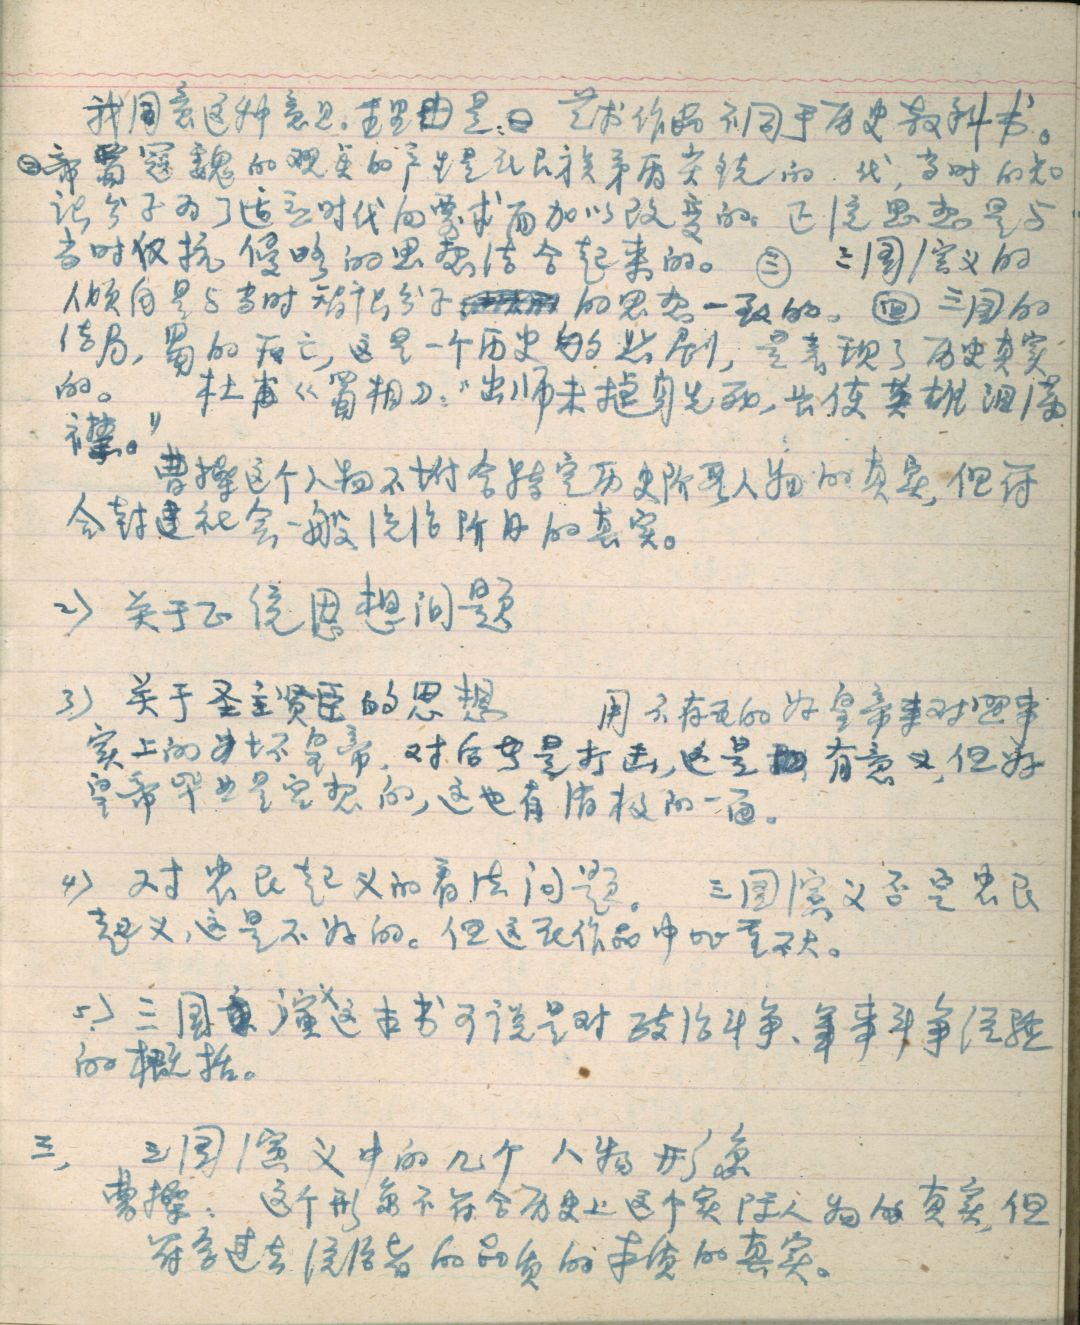 我同意这种意见。理由是:㊀ 艺术作品不同于历史教科书。
㊁帝蜀寇魏的观点的产生是在民族矛盾尖锐的 代,当时的知
识分子为了适应时代的要求而加以改变的。正统思想是与
当时反抗侵略的思想结合起来的。 ㊂ 三国演义的
倾向是与当时知识分子的思想一致的。 ㊃ 三国的
结局,蜀的灭亡,这是一个历史的悲剧,是表现了历史真实
的。 杜甫《蜀相》:"出师未捷身先死,长使英雄泪满
襟。"
曹操这个人物不符合特定历史阶段人物的真实,但符
合封建社会一般统治阶级的真实。
2) 关于正统思想问题
3) 关于圣主贤臣的思想 用不存在的好皇帝来对照事
实上的坏皇帝,对后者是打击,这是有意义,但好
皇帝毕竟是空想的,这也有消极的一面。
4) 对农民起义的看法问题。 三国演义否定农民
起义,这是不好的。但这在作品中比重不大。
5) 三国演义这本书可说是对政治斗争、军事斗争经验
的概括。
三、 三国演义中的几个人物形象
曹操: 这个形象不符合历史上这个实际人物的真实,但
符合过去统治者的品质的本质的真实。